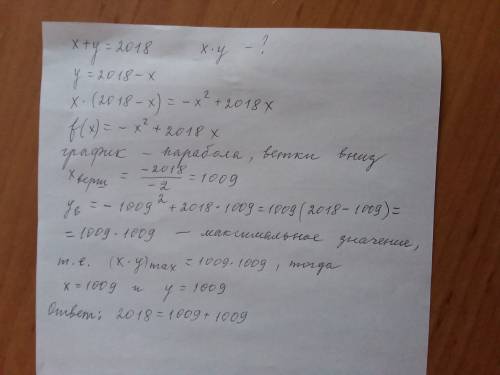 x+y=2018 x·y - ?
y=2018-x
x·(2018-x)=-x²+2018x
f(x)=-x²+2018x
график - парабола, ветки вниз
x верш = -2018/-2 = 1009
y в = -1009²+2018·1009=1009(2018-1009)=
=1009·1009 - максимальное значение,
т.е. (x·y)max = 1009·1009, тогда
x=1009 и y=1009
Ответ: 2018=1009+1009